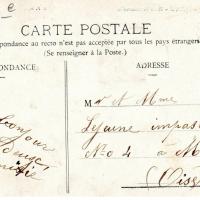 CARTE POSTALE
spondance au recto n'est pas acceptée par tous les pays étrangers
(Se renseigner à la Poste.)
PONDANCE
ADRESSE
M r et Mme
Lejeune impas
No 4 à M
(Oise
Bonjour
amitié